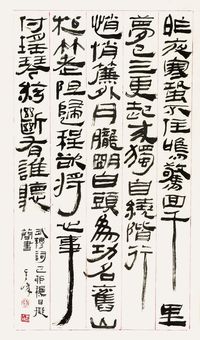 昨夜寒蛩不住鳴驚回千里
夢已三更起來獨自繞階行
悄悄簾外月朧明白頭為功名舊山
松竹老阻歸程欲將心事
付瑤琴絃斷有誰聽
武穆詞
簡書